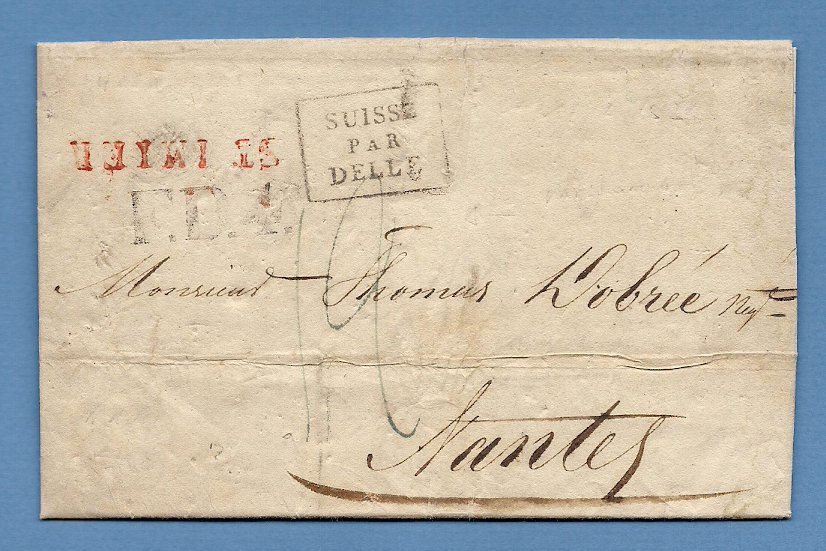 SUISSE
PAR
DELLE
ST IMIER
Monsieur Thomas Dobrée Negt
Nantes